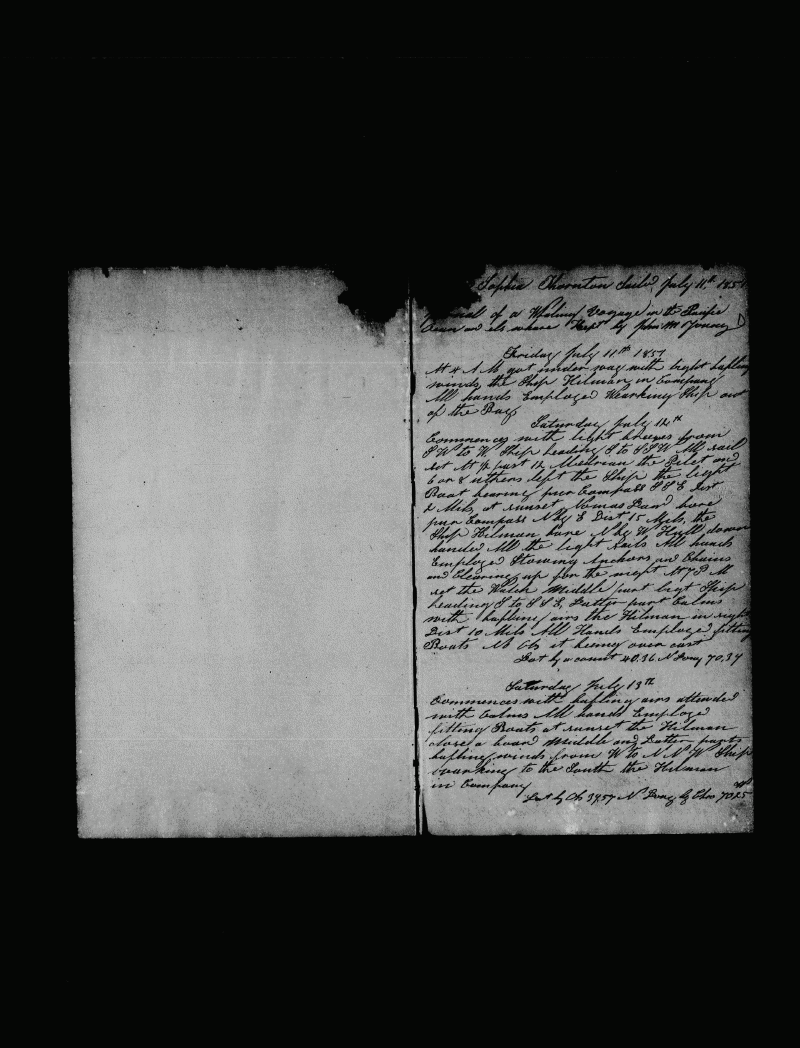 Sophia Thornton Saild July 11th 185
Journal of a Whaling Voyage in the Pacific
Ocean and els where Kept by John M
Friday July 11th 1851
At 4 A M got under way with light bafling
winds, the Ship Hilman, in Company
All hands Employed Wearking Ship out
of the Bay
Saturday July 12th
Commences with light breezes from
S W to W Ship heading S to S S W All sail
set At ½ past 12 Miderian the Pilot and
6 or 8 others left the Ship the light
Boat bearing pur Compass S S E Dist
2 Mils, at sunset Nomas Land bore
pur Compass N by E Dist 15 Mils, the
Ship Hilman bore N by W Hull down
handed All the light sails All hands
Employed Stowing Anchors and Chains
and Clearing up for the night At 7 P M
set the Watch Middle part light Ship
heading S to S S E, Latter part Calms
with bafling airs the Hilman in sight
Dist 10 Mils All Hands Employed fitting
Boats No Ob it being over cast
Lat by account 40.36 N Long 70.37
Saturday July 13th
Commences with bafling airs attended
with Calms All hands Employed
fitting Boats at sunset the Hilman
close a board Middle and Latter parts
bafling winds from W to N N W Ship
wearking to the South the Hilman
in Company
Lat by Ob 39.57 N Long by Chro 70.25 W